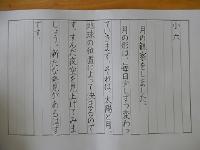 小六
月の観察をしました。
月の形は、毎日少しずつ変わっ
ていきます。それは、太陽と月、
地球の位置によって決まるので
す。すんだ夜空を見上げてみま
しょう。新たな発見があるはず
です。